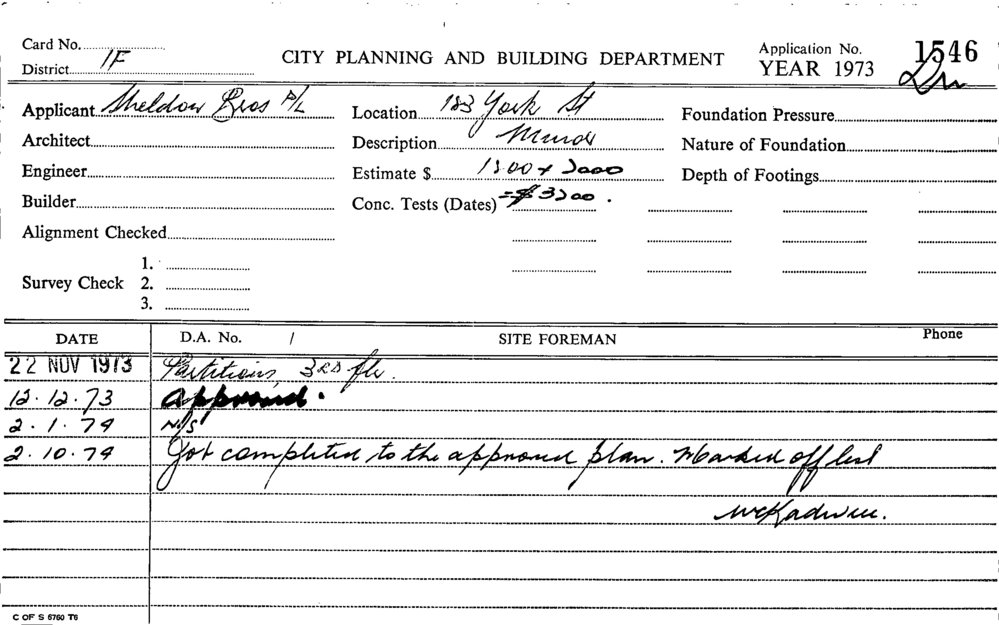 Card No.
District 1F
CITY PLANNING AND BUILDING DEPARTMENT
Application No. 1546
YEAR 1973
Applicant Sheldon Bros P/L
Location 183 York St
Foundation Pressure
Architect
Description Minor
Nature of Foundation
Engineer
Estimate $ 1200 + 2000
Depth of Footings
Builder
Conc. Tests (Dates) =$3200.
Alignment Checked
Survey Check 1.
2.
3.
DATE D.A. No. / SITE FOREMAN Phone
22 NOV 1973 Partitions, 3RD flr.
12.12.73 Approved.
2.1.74 N/S
2.10.74 Job completed to the approved plan. Marked off list
C OF S 5760 T6